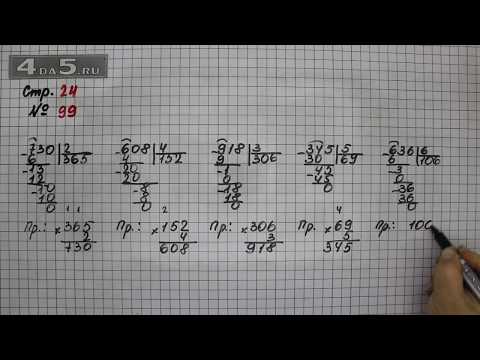 4DA5.RU
Стр. 24
№ 99
-730|2 -608|4 -918|3 -345|5 -636|6
6 |365 4 |152 9 |306 30 |69 6 |106
-13 -20 -1 -45 -3
12 20 0 45 0
-10 -8 -18 0 -36
10 8 18 36
0 0 0 0
1 1 2 4
Пр.: ×365 Пр.: ×152 Пр.: ×306 Пр. ×69 Пр.: 106
2 4 3 5
730 608 918 345